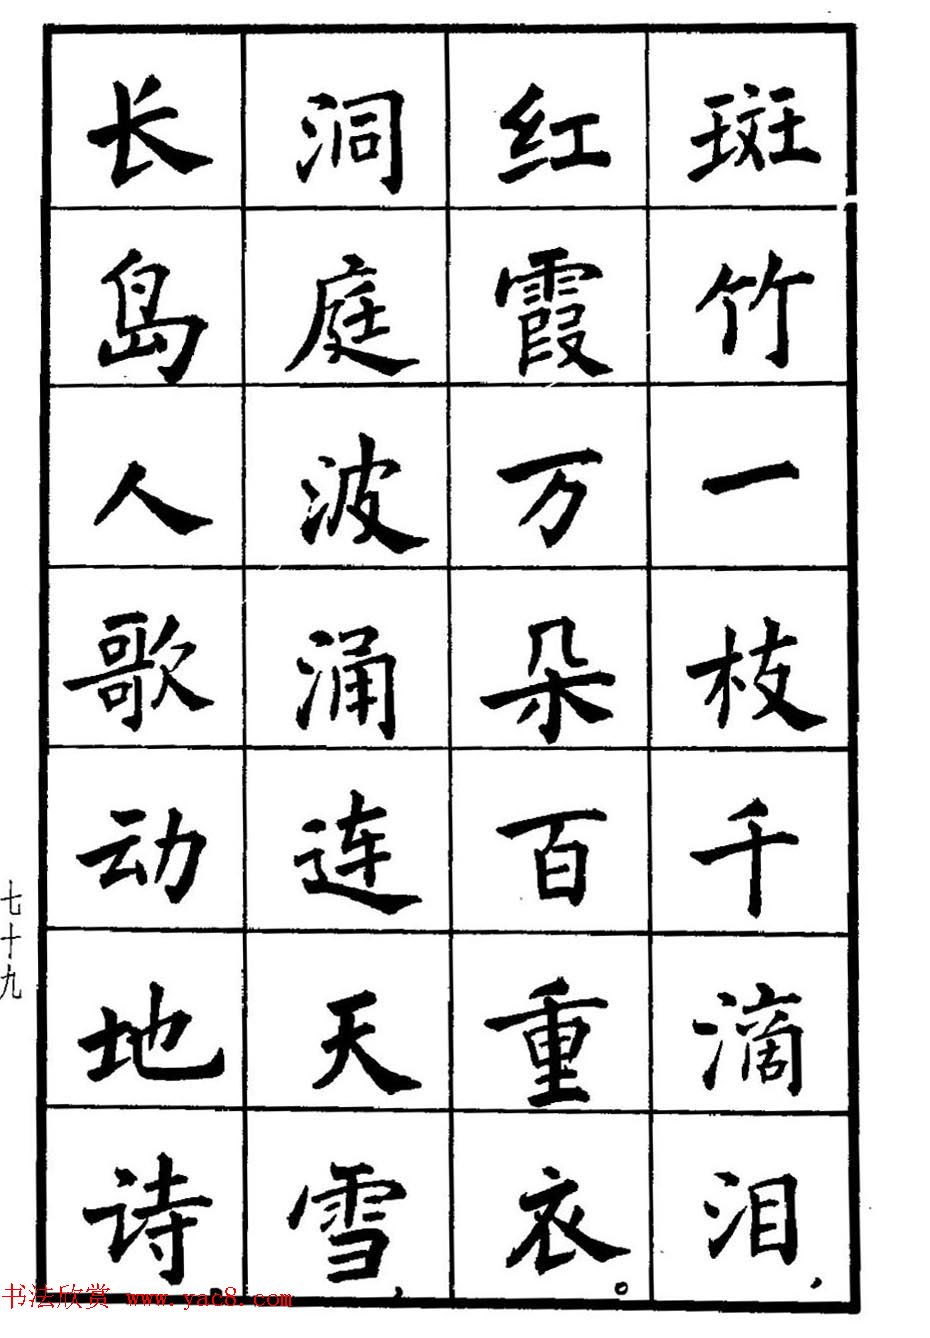 斑竹一枝千滴泪，
红霞万朵百重衣。
洞庭波涌连天雪，
长岛人歌动地诗
七十九
书法欣赏 www.yac8.com